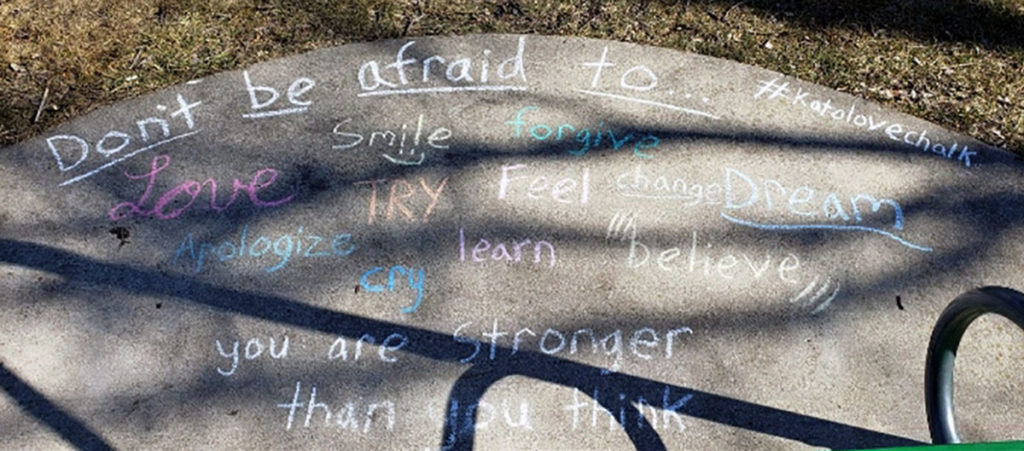 Don't be afraid to...
#Katolovechalk
Smile forgive
Love TRY Feel change Dream
Apologize learn believe
cry
you are stronger
than you think